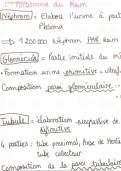 I - Anatomie du Rein
Néphron = Elabore l'urine à part
Plasma
=> 1 200 000 Néphron PAR Rein
Glomérule = Partie initiale du
• Formation urine primitive = ultraf
Composition paroi glomérulaire :
Tubule = élaboration progressive de
définitive
4 parties : tube proximal, Anse de Henlé
tube collecteur
Composition de la paroi tubulaire